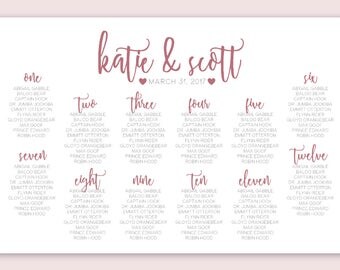 katie & scott
MARCH 31, 2017
one
ABIGAIL GABBLE
BALOO BEAR
CAPTAIN HOOK
DR. JUMBA JOOKIBA
EMMITT OTTERTON
FLYNN RIDER
GLOYD ORANGEBOAR
MAX GOOF
PRINCE EDWARD
ROBIN HOOD
Two
ABIGAIL GABBLE
BALOO BEAR
CAPTAIN HOOK
DR. JUMBA JOOKIBA
EMMITT OTTERTON
FLYNN RIDER
GLOYD ORANGEBOAR
MAX GOOF
PRINCE EDWARD
ROBIN HOOD
Three
ABIGAIL GABBLE
BALOO BEAR
CAPTAIN HOOK
DR. JUMBA JOOKIBA
EMMITT OTTERTON
FLYNN RIDER
GLOYD ORANGEBOAR
MAX GOOF
PRINCE EDWARD
ROBIN HOOD
four
ABIGAIL GABBLE
BALOO BEAR
CAPTAIN HOOK
DR. JUMBA JOOKIBA
EMMITT OTTERTON
FLYNN RIDER
GLOYD ORANGEBOAR
MAX GOOF
PRINCE EDWARD
ROBIN HOOD
five
ABIGAIL GABBLE
BALOO BEAR
CAPTAIN HOOK
DR. JUMBA JOOKIBA
EMMITT OTTERTON
FLYNN RIDER
GLOYD ORANGEBOAR
MAX GOOF
PRINCE EDWARD
ROBIN HOOD
six
ABIGAIL GABBLE
BALOO BEAR
CAPTAIN HOOK
DR. JUMBA JOOKIBA
EMMITT OTTERTON
FLYNN RIDER
GLOYD ORANGEBOAR
MAX GOOF
PRINCE EDWARD
ROBIN HOOD
seven
ABIGAIL GABBLE
BALOO BEAR
CAPTAIN HOOK
DR. JUMBA JOOKIBA
EMMITT OTTERTON
FLYNN RIDER
GLOYD ORANGEBOAR
MAX GOOF
PRINCE EDWARD
ROBIN HOOD
eight
ABIGAIL GABBLE
BALOO BEAR
CAPTAIN HOOK
DR. JUMBA JOOKIBA
EMMITT OTTERTON
FLYNN RIDER
GLOYD ORANGEBOAR
MAX GOOF
PRINCE EDWARD
ROBIN HOOD
nine
ABIGAIL GABBLE
BALOO BEAR
CAPTAIN HOOK
DR. JUMBA JOOKIBA
EMMITT OTTERTON
FLYNN RIDER
GLOYD ORANGEBOAR
MAX GOOF
PRINCE EDWARD
ROBIN HOOD
Ten
ABIGAIL GABBLE
BALOO BEAR
CAPTAIN HOOK
DR. JUMBA JOOKIBA
EMMITT OTTERTON
FLYNN RIDER
GLOYD ORANGEBOAR
MAX GOOF
PRINCE EDWARD
ROBIN HOOD
eleven
ABIGAIL GABBLE
BALOO BEAR
CAPTAIN HOOK
DR. JUMBA JOOKIBA
EMMITT OTTERTON
FLYNN RIDER
GLOYD ORANGEBOAR
MAX GOOF
PRINCE EDWARD
ROBIN HOOD
Twelve
ABIGAIL GABBLE
BALOO BEAR
CAPTAIN HOOK
DR. JUMBA JOOKIBA
EMMITT OTTERTON
FLYNN RIDER
GLOYD ORANGEBOAR
MAX GOOF
PRINCE EDWARD
ROBIN HOOD